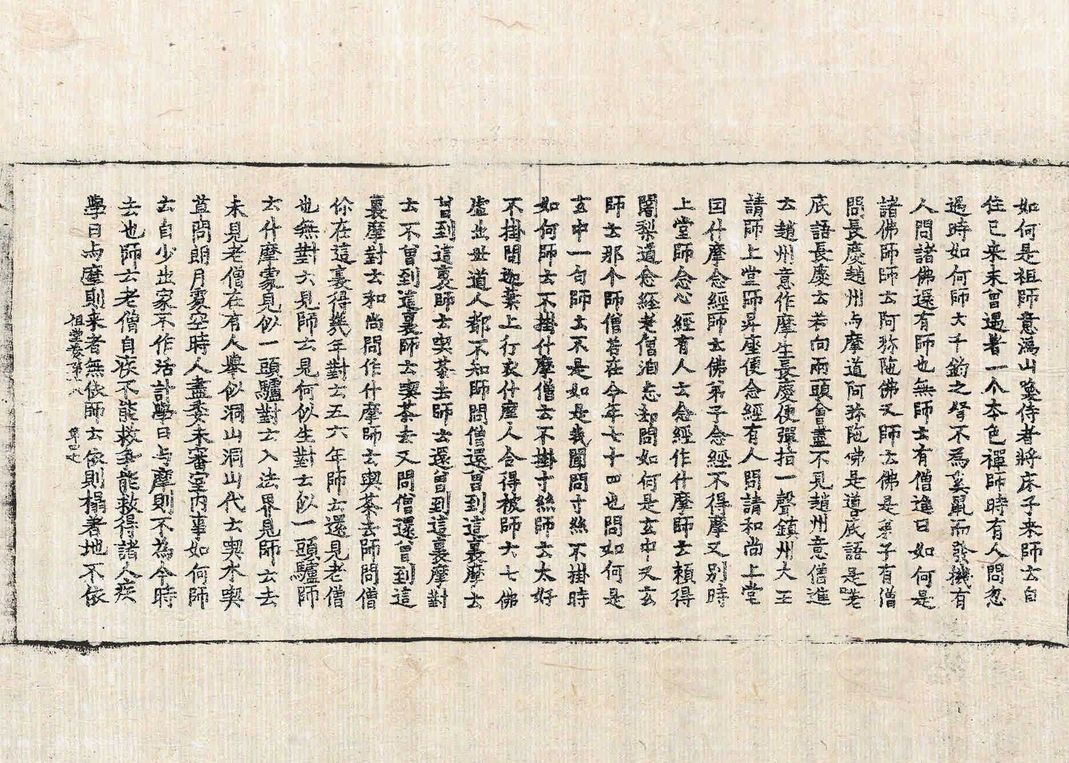 如何是祖師意溈山喚侍者將床子来師云自
住已来未曾遇著一个本色禪師時有人問忽
遇時如何師云千鈞之弩不為奚鼠而發機有
人問諸佛還有師也無師云有僧進曰如何是
諸佛師師云阿弥陁佛又師云佛是弟子有僧
問長慶趙州与摩道阿弥陁佛是導底語是嗟
底語長慶云若向兩頭會盡不見趙州意僧進
云趙州意作摩生長慶便彈指一聲鎮州大王
請師上堂師昇座便念經有人問請和尚上堂
因什摩念經師云佛弟子念經不得摩又別時
上堂師念心經有人云念經作什摩師云賴得
闍梨道念經老僧洎忘却問如何是玄中又玄
師云那个師僧若在今年七十四也問如何是
玄中一句師云不是如是我聞問寸絲不掛時
如何師云不掛什摩僧云不掛寸絲師云太好
不掛問迦葉上行衣什摩人合得被師云七佛
虛出世道人都不知師問僧還曾到這裏摩云
曾到這裏師云喫茶去師云還曾到這裏摩對
云不曾到這裏師云喫茶去又問僧還曾到這
裏摩對云和尚問作什摩師云喫茶去師問僧
你在這裏得幾年對云五六年師云還見老僧
也無對云見師云見何似生對云似一頭驢師
云什摩處見似一頭驢對云入法界見師云去
未見老僧在有人舉似洞山洞山代云喫水喫
草問朗月處空時人盡委未審室內事如何師
云自少出家不作活計學曰与摩則不為今時
去也師云老僧自疾不能救爭能救得諸人疾
學曰与摩則来者無依師云依則榻著地不依
祖堂集第十八